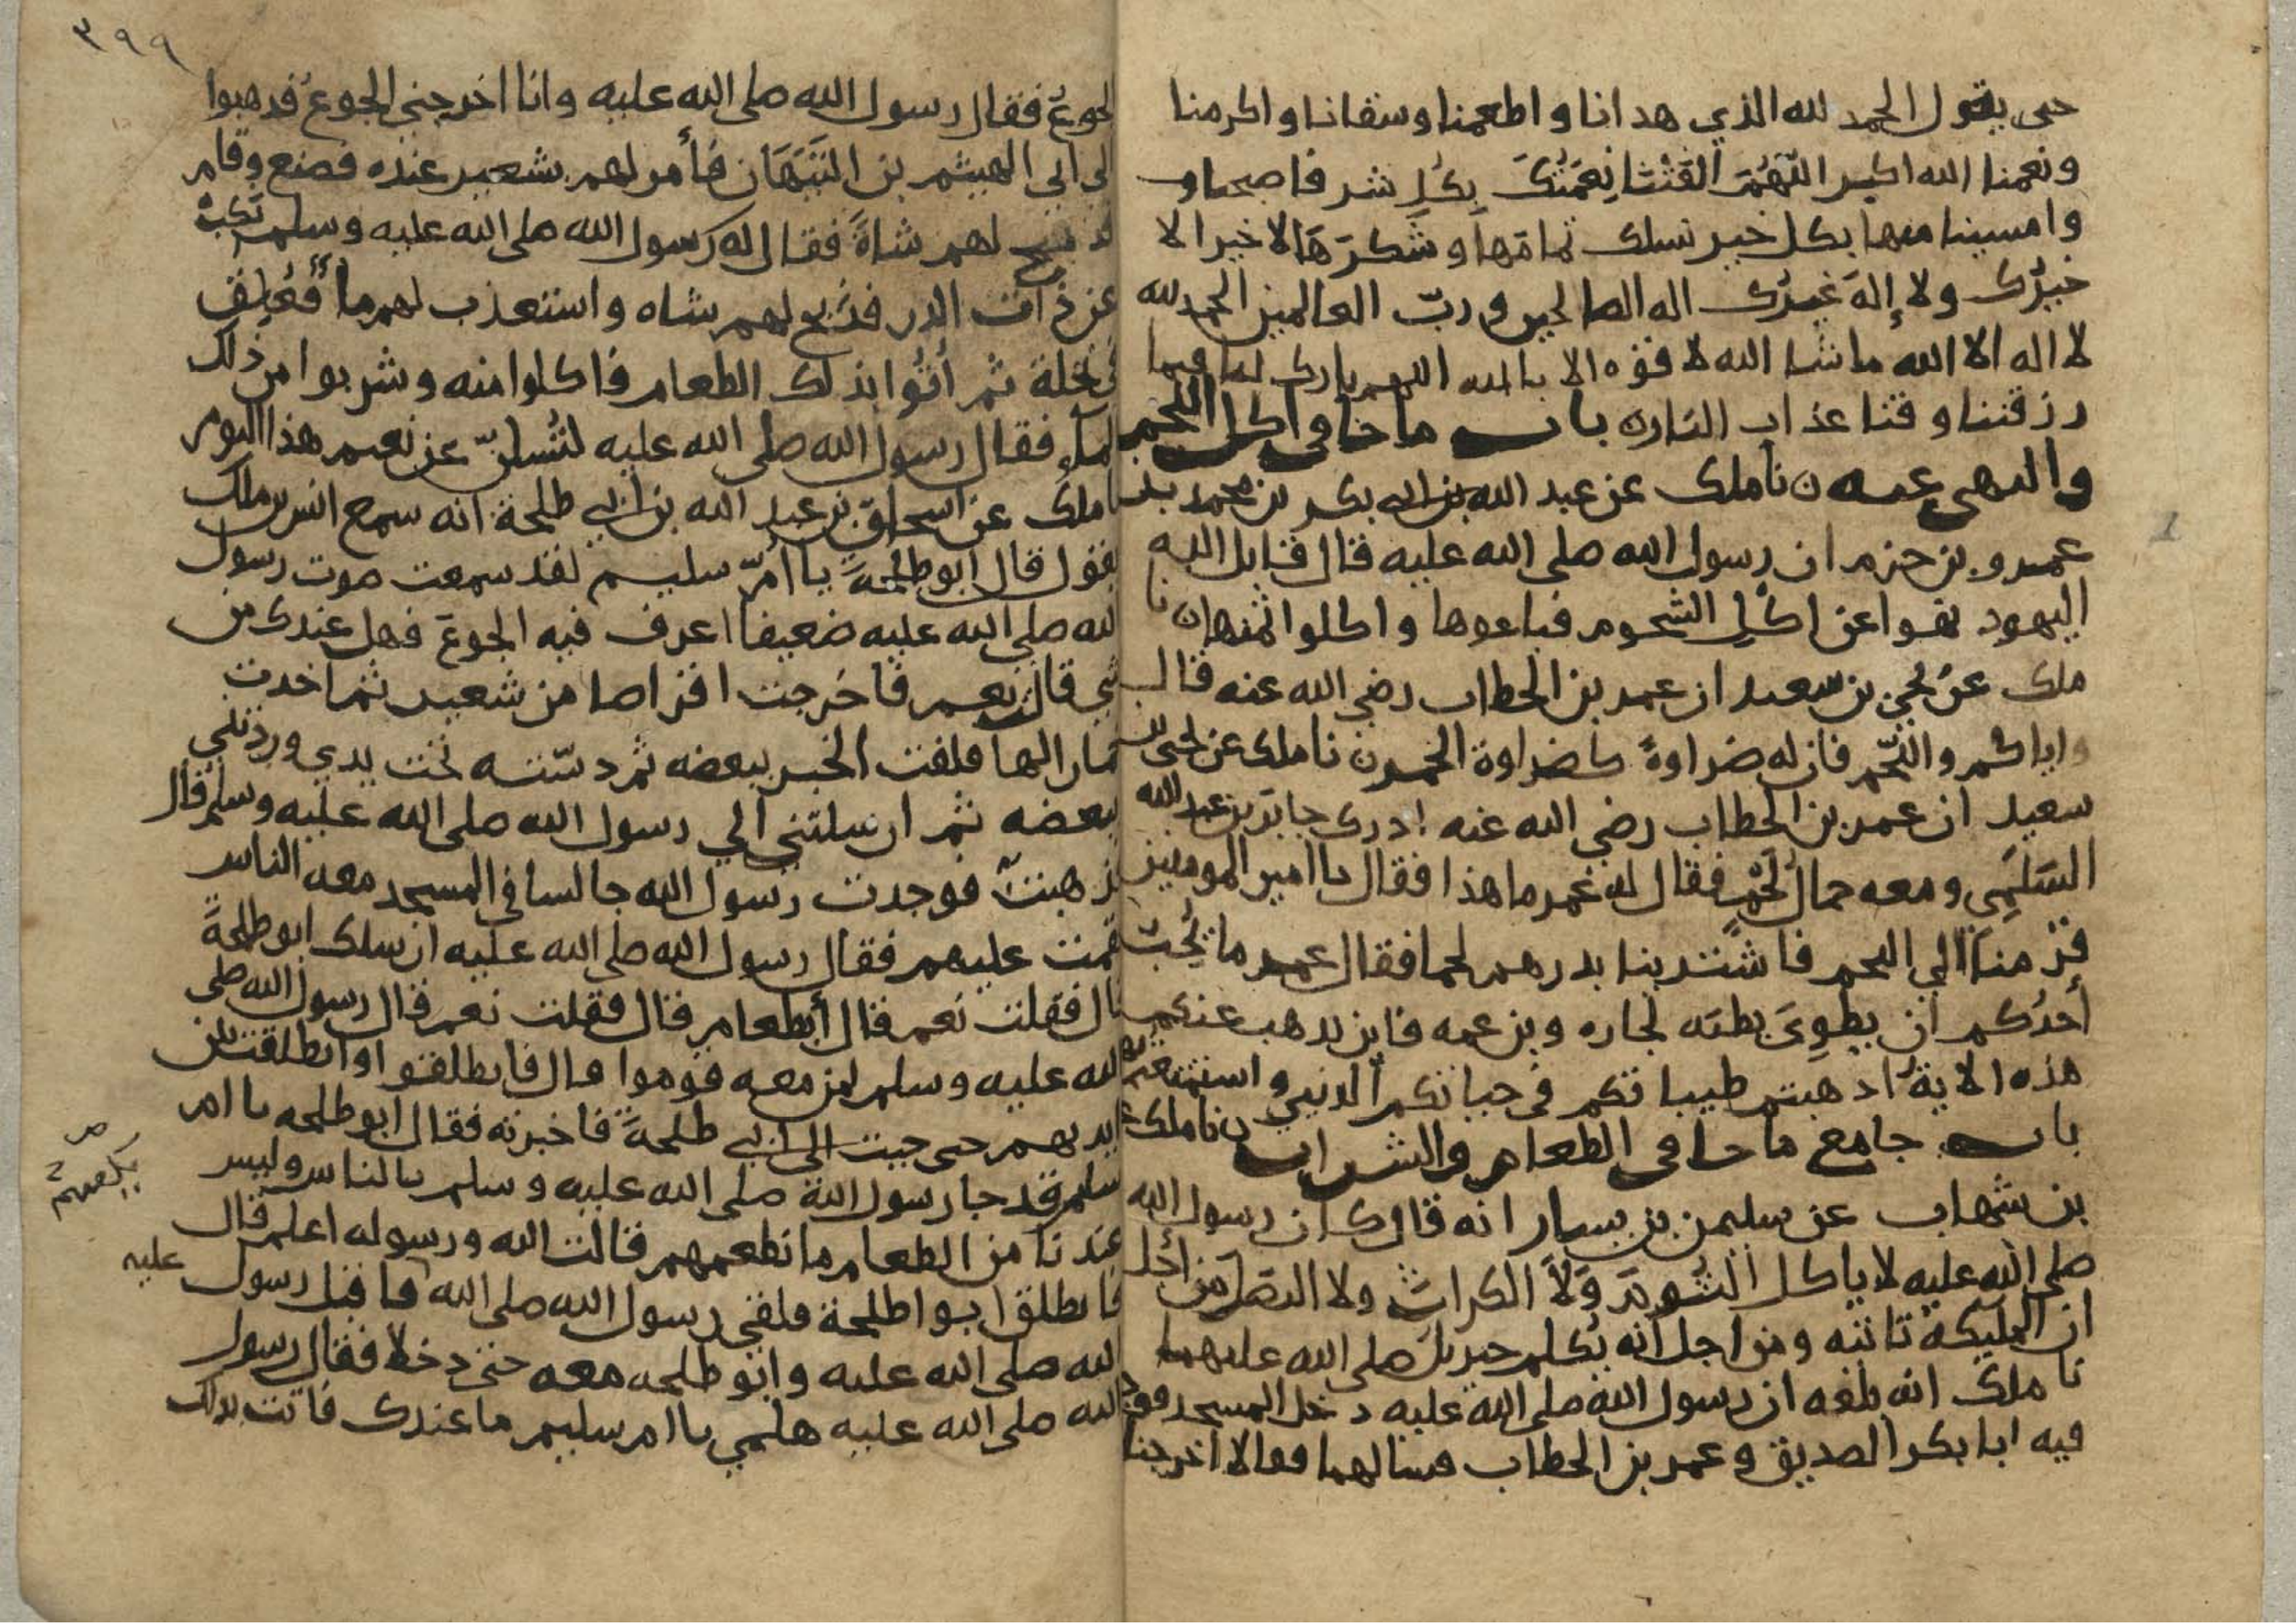 حتى يقول الحمد لله الذي هدانا واطعمنا وسقانا واكرمنا
ونعمنا الله اكبر اللَّهُمَّ ألفَتْنَا نِعْمَتُكَ بِكُلِ شر فاصبحنا
وامسينا منها بكل خير نسلك تمامَها وشُكرَهَا لا خير الا
خيرُك ولا إلهَ غيرُك اله الصالحين وربّ العالمين الحمد لله
لا اله الا الله ما شا الله لا قوه الا بالله اللهم بارك لنا فيما
رزقتنا وقنا عذاب النار ه باب ما جا في اكل اللحم
والنهي عنه ن نا ملك عن عبد الله بن ابي بكر بن محمد بن
عمرو بن حزم ان رسول الله صلى الله عليه قال قاتل الله
اليهود نهوا عن اكْلِ الشحوم فباعوها واكلوا ثمنها ن نا
ملك عن يحيى بن سعيد ان عمر بن الخطاب رضي الله عنه قال
واياكم واللّحم فان له ضراوةً كضراوة الخمر ن نا ملك عن يحيى بن
سعيد ان عمر بن الخطاب رضي الله عنه ادرك جابر بن عبد الله
السَلَمِي ومعه حمالُ لَحْمٍ فقال له عمر ما هذا فقال يا امير المومنين
قرمنا الي اللحم فاشتَرينا بدرهم لحما فقال عمر ما يُحِبّ
أحدُكم ان يطوِيَ بطنَه لجاره وبن عمه فاين يذهب عنكم
هذه الايةُ اذهبتم طيباتكم في حياتكم الدنيى واستمتعتم بها
باب جامع ما جا في الطعام والشراب ن نا ملك عن
بن شهاب عن سليمن بن يسار انه قال كان رسول الله
صلى الله عليه لا ياكل الثُومَ وَلاَ الكراثَ ولا البَصَلَ من أجل
ان المليكةَ تاتيه ومن اجل أنه يُكلم جبريلَ صلى الله عليهما
نا ملك انه بلغه ان رسول الله صلى الله عليه دخل المسجد فوجد
فيه ابا بكر الصديق وعمر بن الخطاب فسالهما فقالا اخرجنا
٣٩٩
الجوعُ فقال رسول الله صلى الله عليه وانا اخرجني الجوعُ فذهبوا
الي ابي الهيثم بن التَيَّهَان فأمر لهم بشعير عنده فصنع وقام
لهم شاةً فقال له رسول الله صلى الله عليه وسلم نَكِبْ
عن ذات الدر فذبح لهم شاه واستعذب لهم مأً فَعُلِقَ
في نخلة ثم أُتُوا بذلك الطعام فاكلوا منه وشربوا من ذلك
الماء فقال رسول الله صلى الله عليه لتُسلنّ عن نعيم هذا اليوم
نا ملك عن اسحاق بن عبد الله بن ابي طلحة انه سمع انس بن ملك
يقول قال ابو طلحة يا أُمّ سليم لقد سمعت صوت رسول
الله صلى الله عليه ضعيفا اعرف فيه الجوعَ فهل عندك من
شي قال نعم فاخرجت اقراصا من شعير ثم اخذت
خمارا لها فلفت الخبز ببعضه ثم دسّته تحت يدي وردتني
ببعضه ثم ارسلتني الي رسول الله صلى الله عليه وسلم قال
فذهبت فوجدت رسول الله جالسا في المسجد معه الناس
فقمت عليهم فقال رسول الله صلى الله عليه ارسلك ابو طلحةَ
قال فقلت نعم قال أبطعام قال فقلت نعم قال رسول الله صلى
الله عليه وسلم لمن معه قوموا قال فانطلقوا وانطلقت بين
ايديهم حتى جيت الى ابي طلحةَ فاخبرته فقال ابو طلحه يا ام
سليم قد جا رسول الله صلى الله عليه وسلم بالناس وليس
عندنا من الطعام ما نطعمهم فقالت الله ورسوله اعلم قال
فانطلق ابوا طلحة فلقي رسول الله صلى الله عليه فاقبل رسول
الله صلى الله عليه وابو طلحه معه حتى دخلا فقال رسول
الله صلى الله عليه هلمي يا ام سليم ما عندك فاتت بذلك